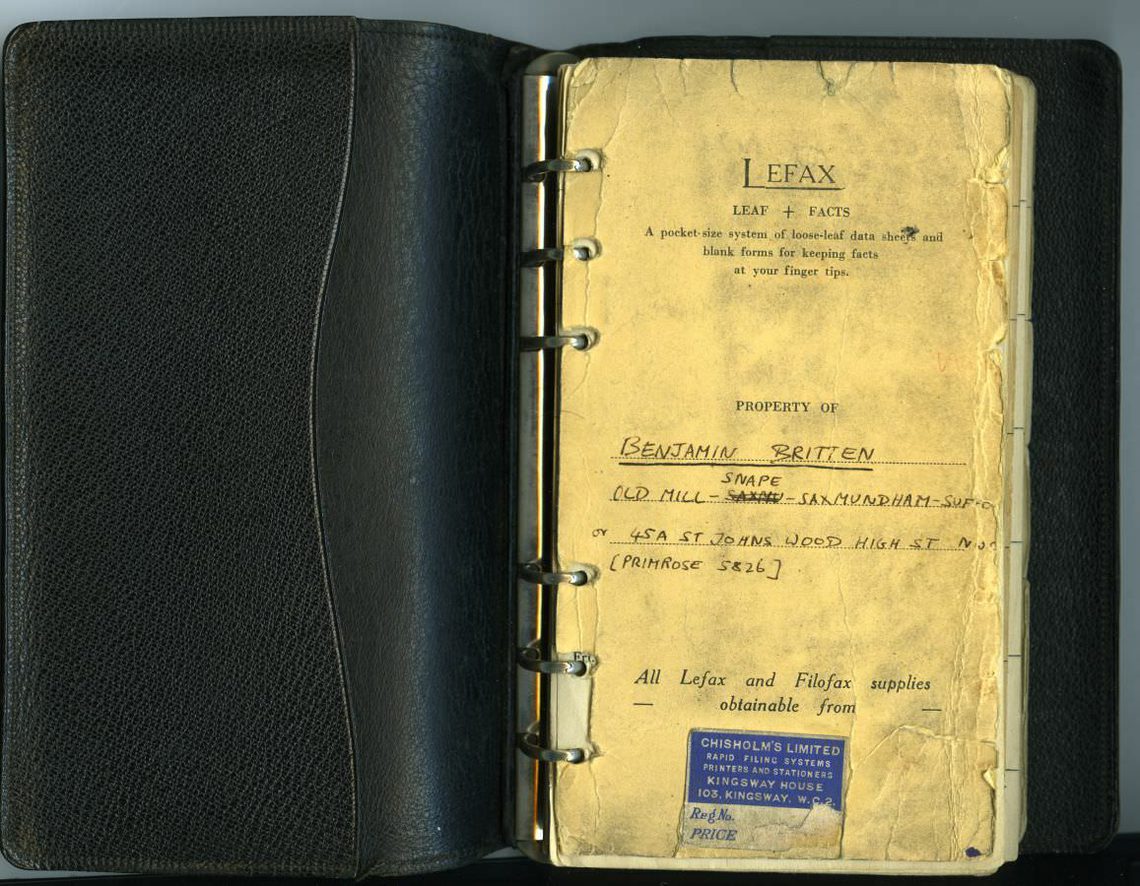 LEFAX
LEAF + FACTS
A pocket-size system of loose-leaf data sheets and
blank forms for keeping facts
at your finger tips.
PROPERTY OF
BENJAMIN BRITTEN
SNAPE
OLD MILL - SAXMU - SAXMUNDHAM - SUF
or 45A ST JOHNS WOOD HIGH ST N.W.
[PRIMROSE 5826]
All Lefax and Filofax supplies
— obtainable from —
CHISHOLM'S LIMITED
RAPID FILING SYSTEMS
PRINTERS AND STATIONERS
KINGSWAY HOUSE
103, KINGSWAY, W.C.2.
Reg No.
PRICE